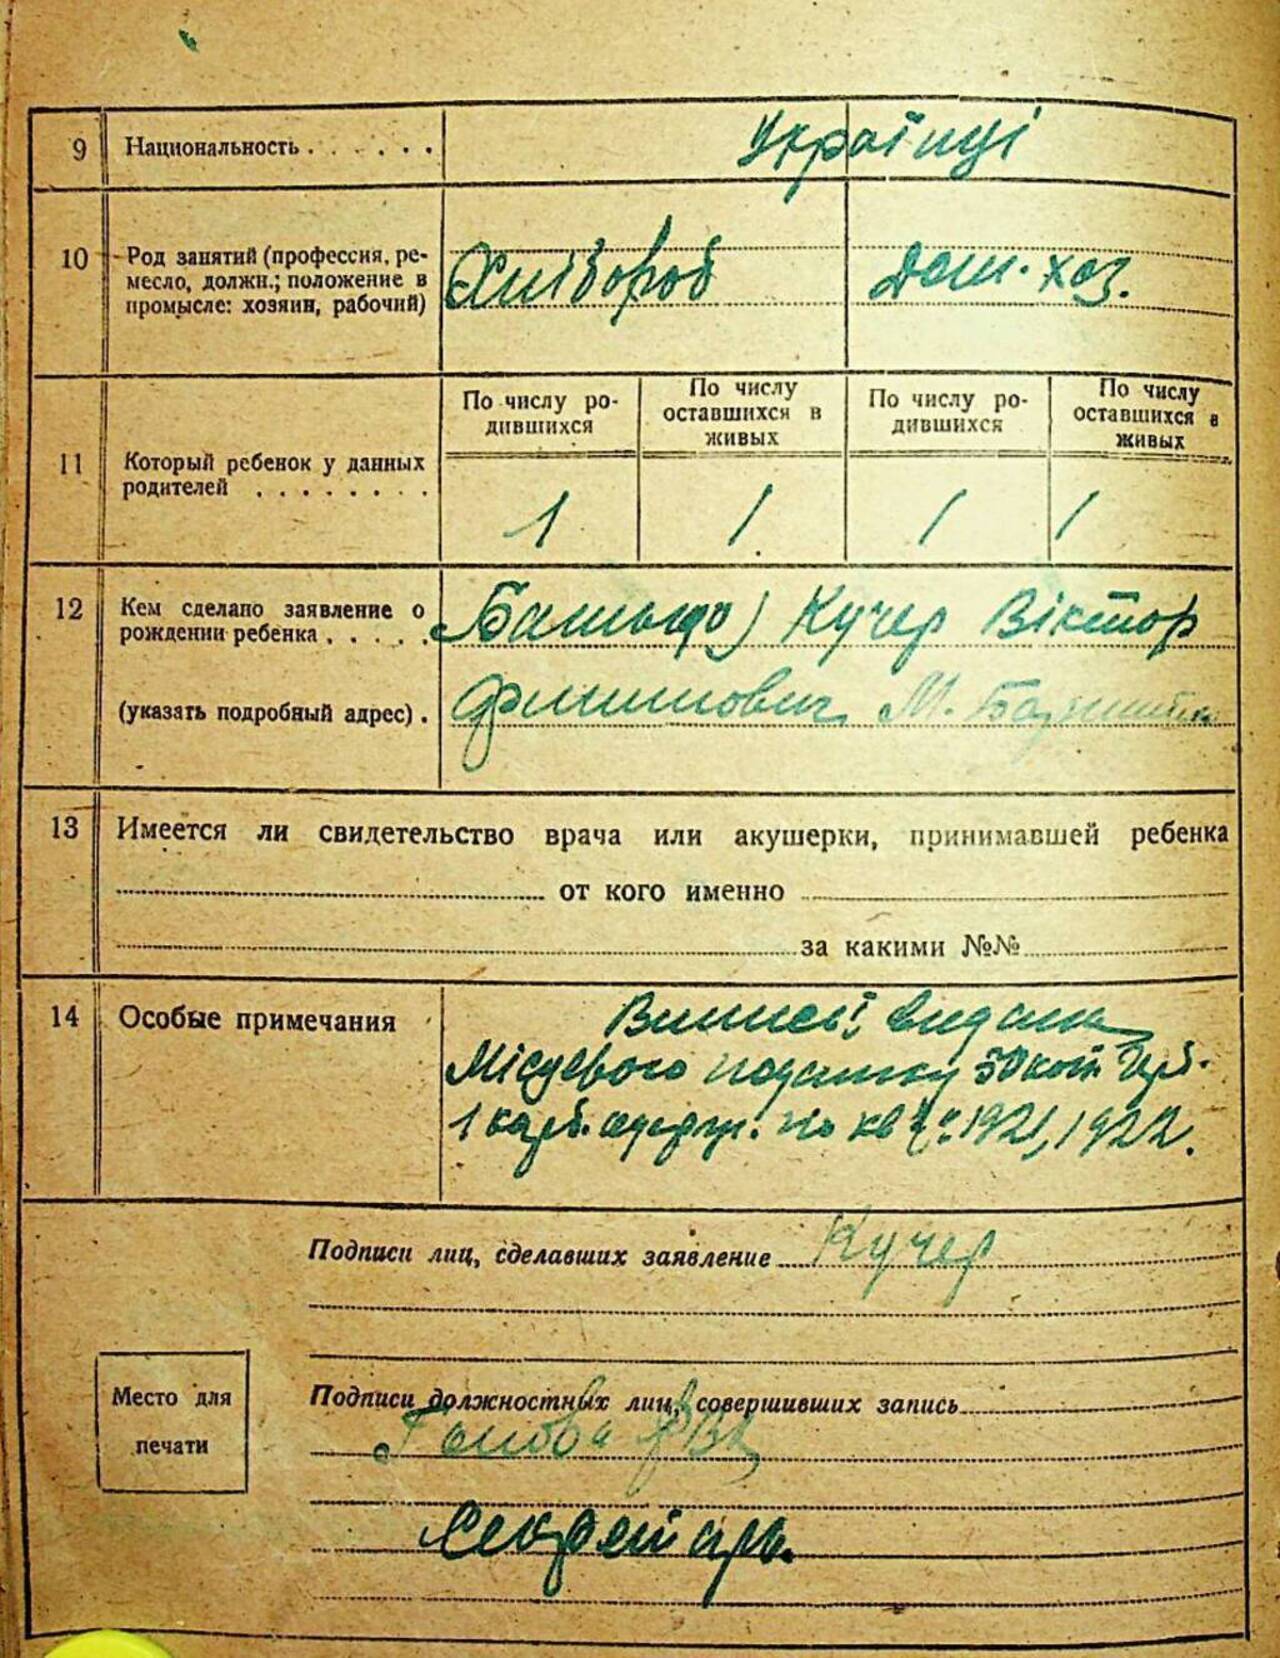 9 Национальность . . . . . . Українці
10 Род занятий (профессия, ре-
месло, должн.; положение в
промысле: хозяин, рабочий)
Хлібороб
дом. хоз.
11 Который ребенок у данных
родителей . . . . . . . .
По числу ро-
дившихся
По числу
оставшихся в
живых
По числу ро-
дившихся
По числу
оставшихся в
живых
1 1 1 1
12 Кем сделано заявление о
рождении ребенка . . . . .
(указать подробный адрес) .
Батько) Кучер Віктор
Филипович М.
13 Имеется ли свидетельство врача или акушерки, принимавшей ребенка
от кого именно
за какими №№
14 Особые примечания
видана
Місцевого податку 50 коп.
1 карб. одерж. по кв. 1921, 1922.
Подписи лиц, сделавших заявление Кучер
Место для
печати
Подписи должностных лиц, совершивших запись
Голова
Секретарь.